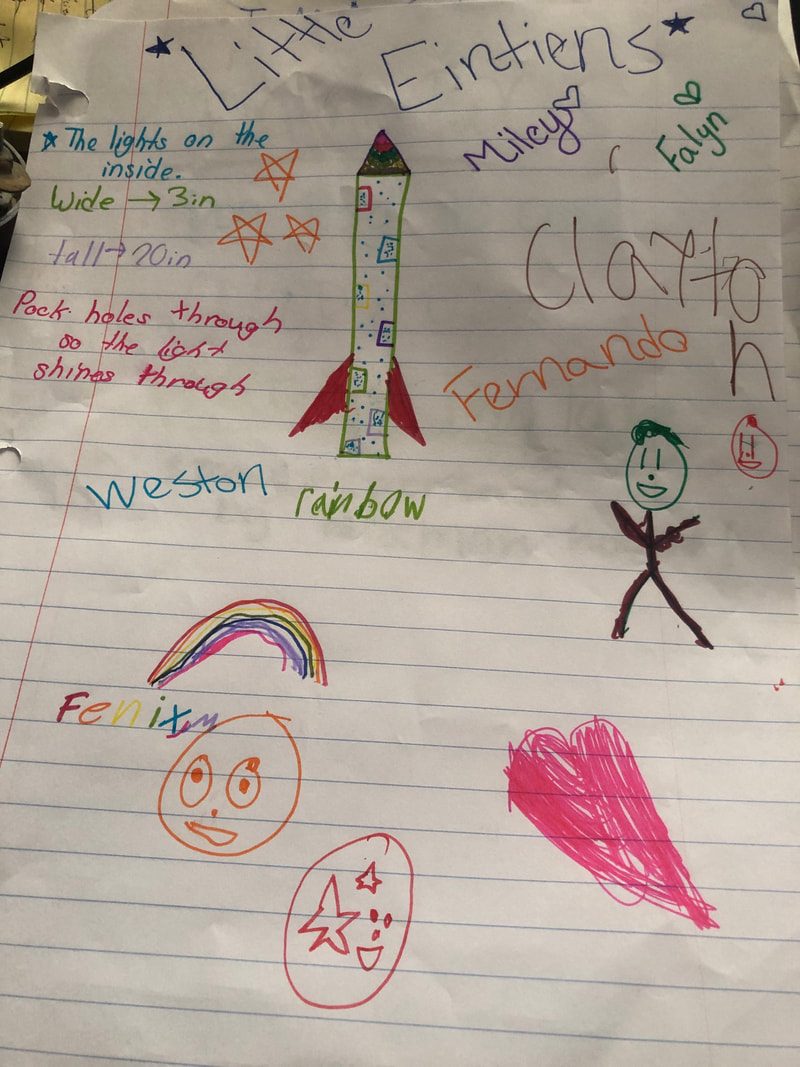 Little Eintiens
Milcy
Falyn
The lights on the
inside.
Wide → 3in
tall → 20in
Pock holes through
so the light
shines through
Clayto
n
Fernando
Weston
rainbow